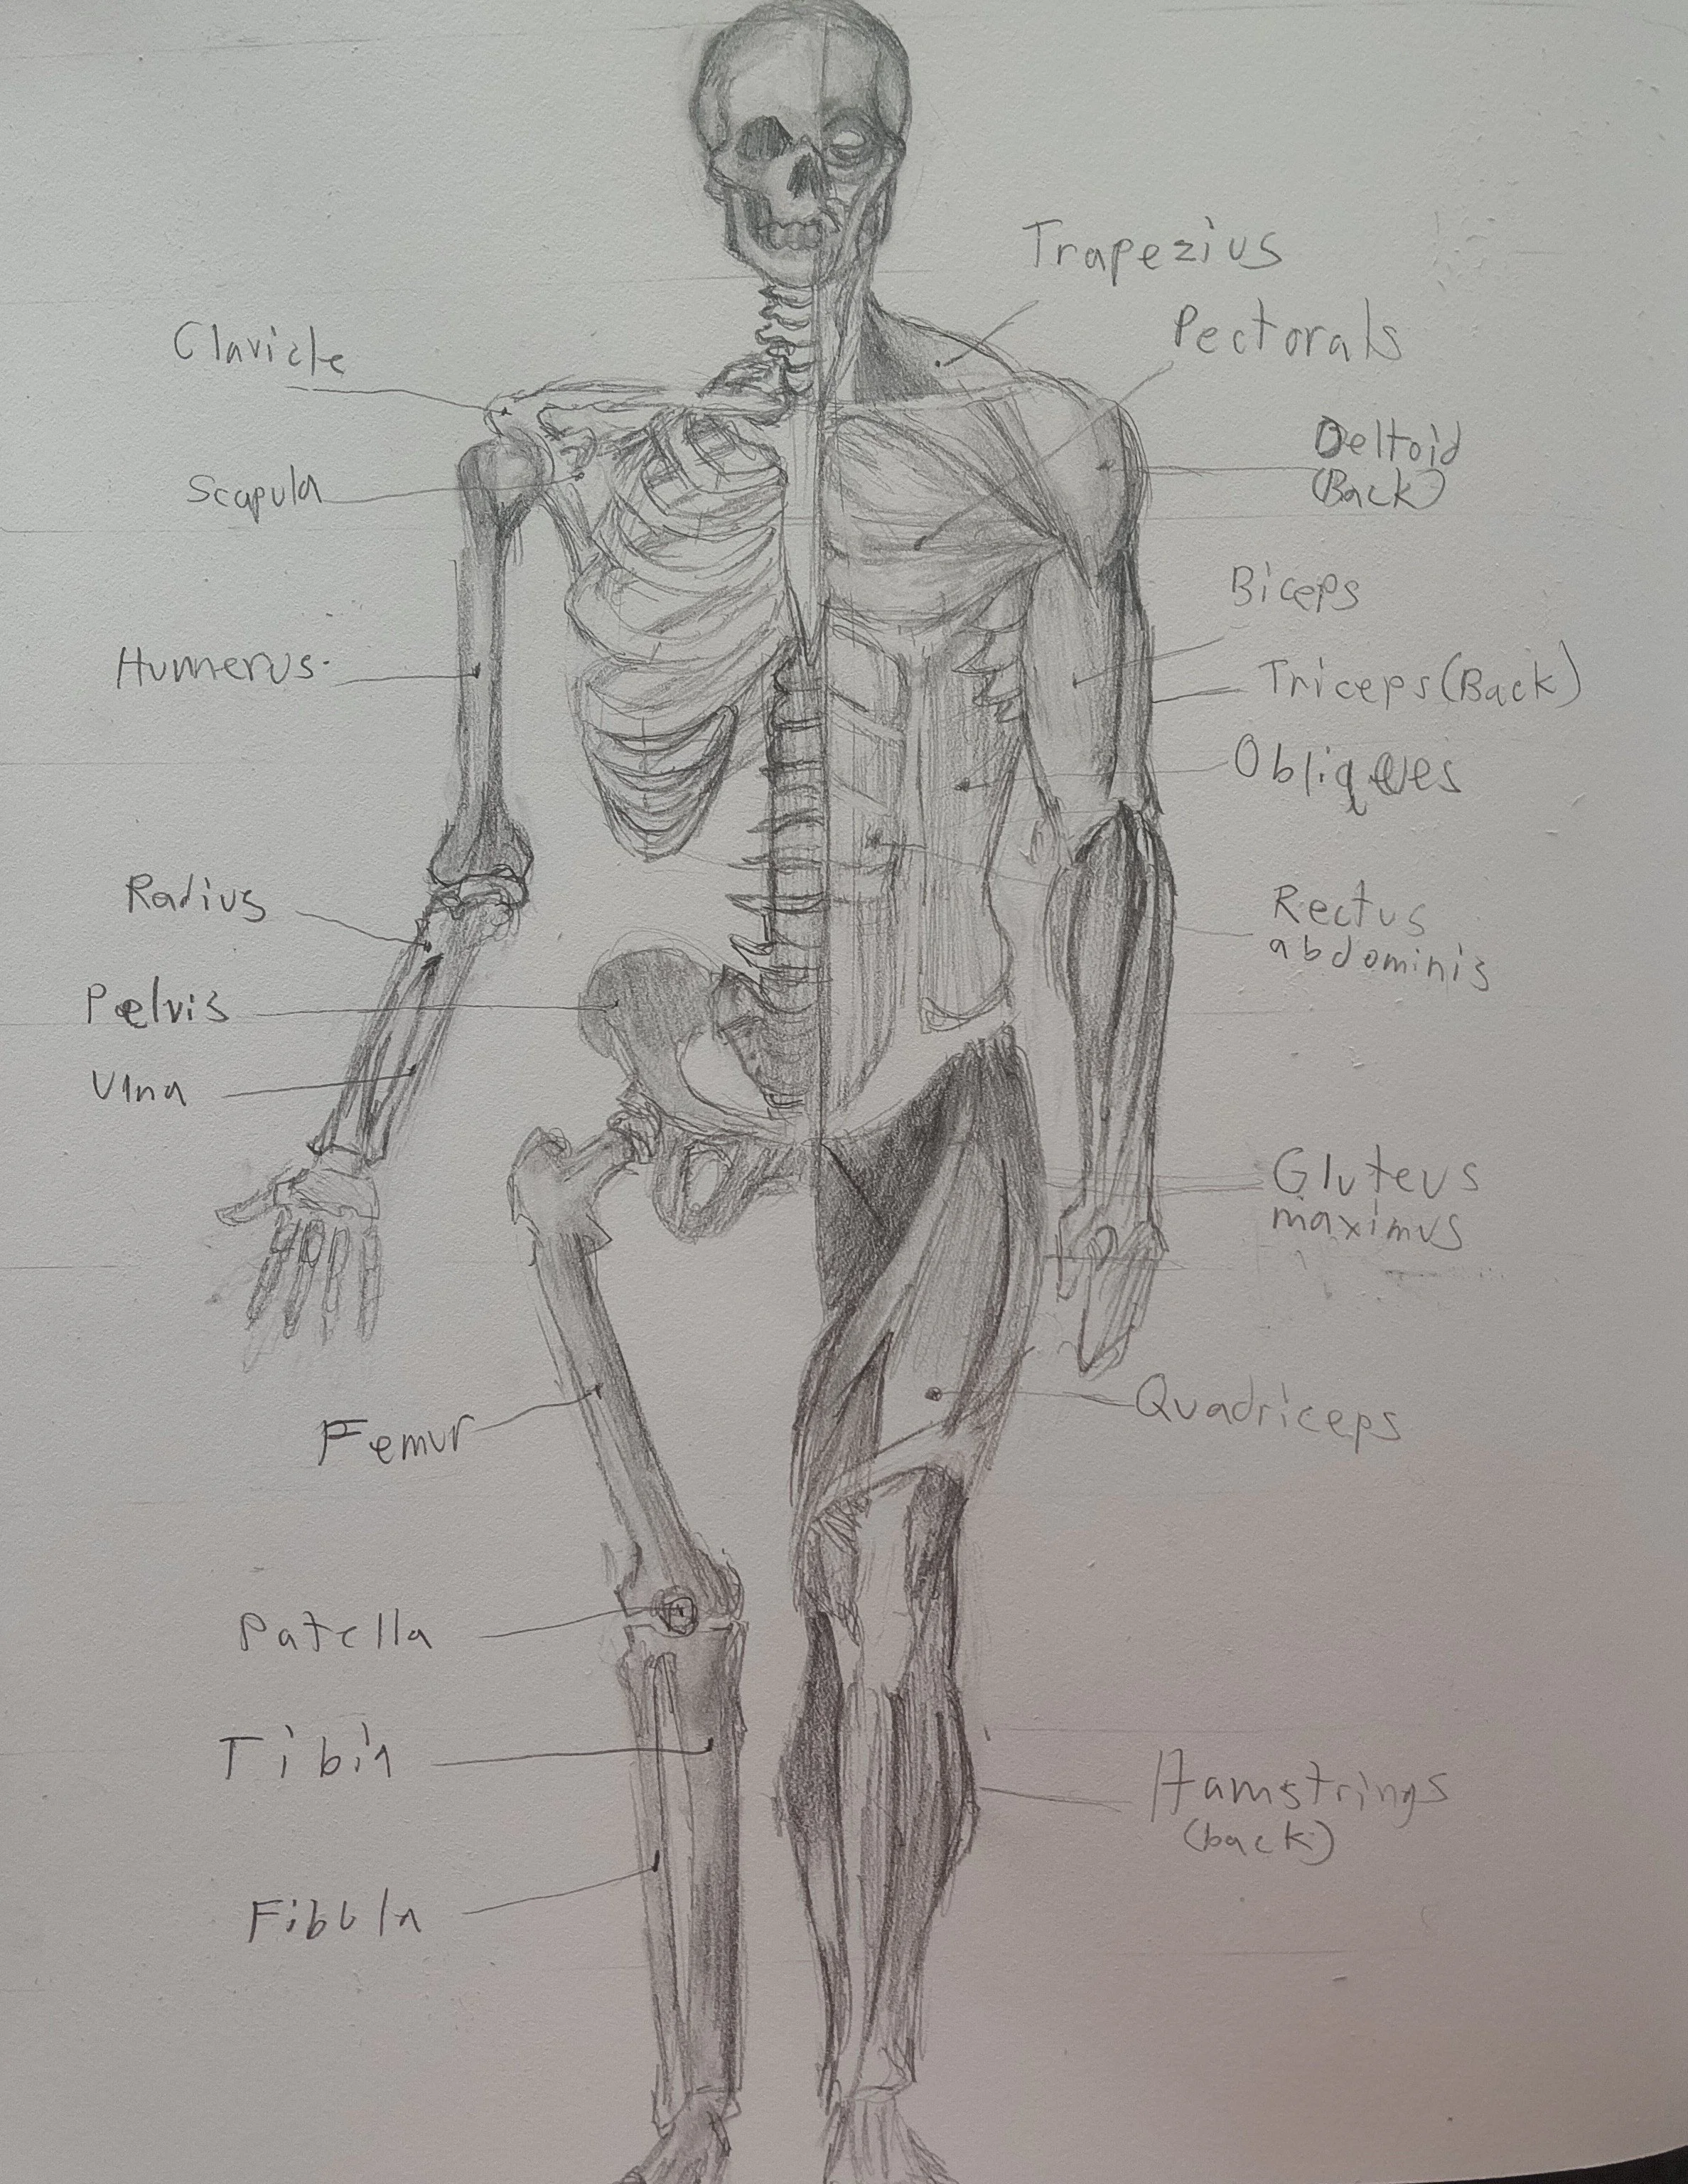 Trapezius
Pectorals
Clavicle
Deltoid
(Back)
Scapula
Biceps
Humerus
Triceps (Back)
Obliques
Radius
Rectus
abdominis
Pelvis
Ulna
Gluteus
maximus
Quadriceps
Femur
Patella
Tibia
Hamstrings
(back)
Fibula